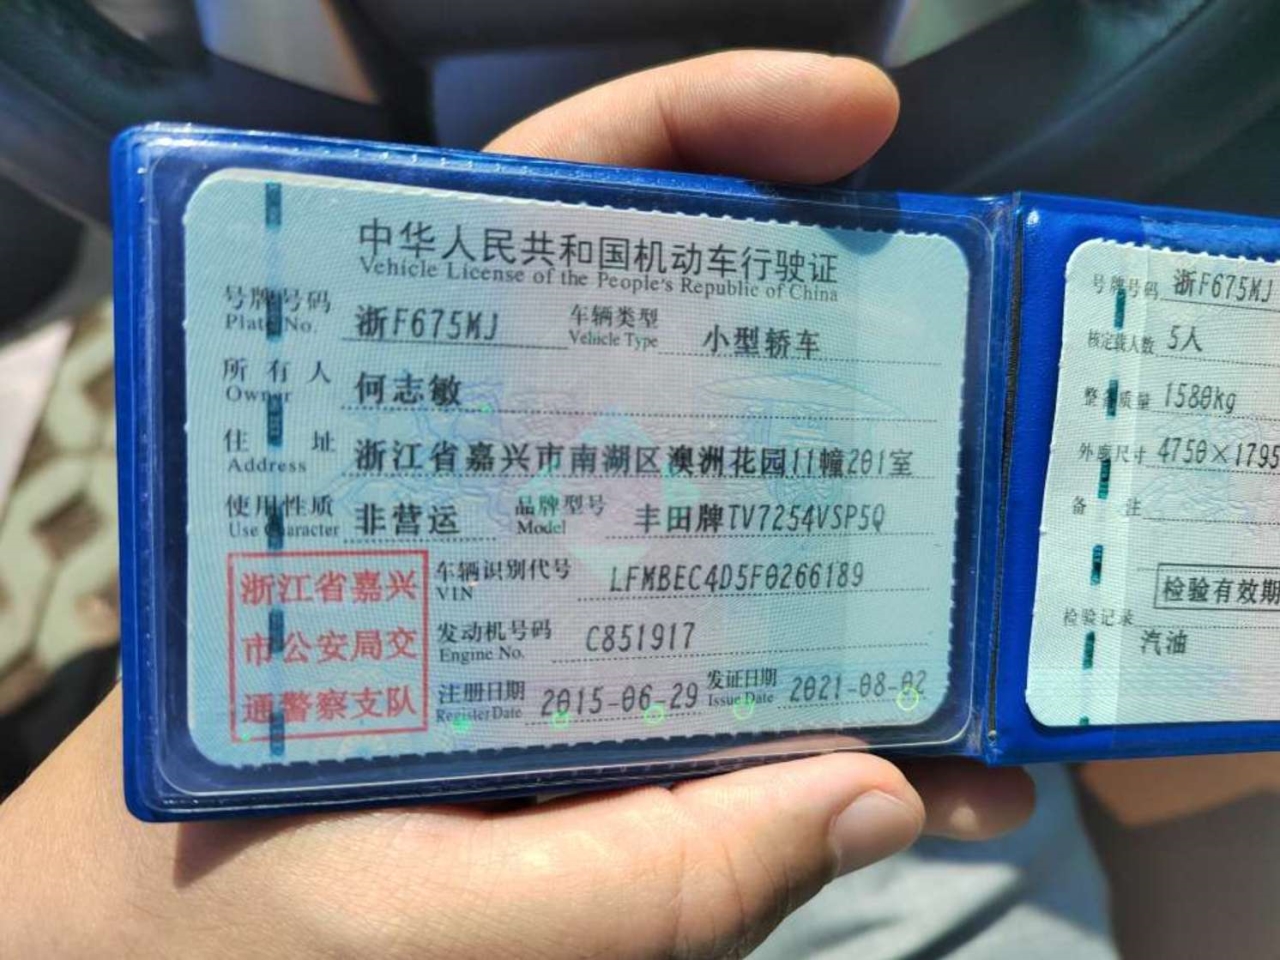 中华人民共和国机动车行驶证
Vehicle License of the People's Republic of China
号牌号码 浙F675MJ 车辆类型 小型轿车
Plate No. Vehicle Type
所有人 何志敏
Owner
住址 浙江省嘉兴市南湖区澳洲花园11幢201室
Address
使用性质 非营运 品牌型号 丰田牌TV7254VSP5Q
Use Character Model
浙江省嘉兴
市公安局交
通警察支队
车辆识别代号 LFMBEC4D5F0266189
VIN
发动机号码 C851917
Engine No.
注册日期 2015-06-29 发证日期 2021-08-02
Register Date Issue Date
号牌号码 浙F675MJ
核定载人数 5人
整备质量 1580kg
外廓尺寸 4750×1795
备注
检验有效期
检验记录
汽油